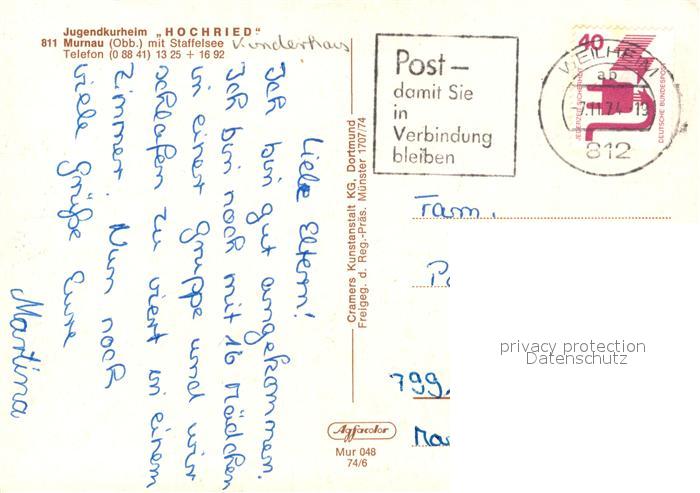 Jugendkurheim „HOCHRIED"
811 Murnau (Obb.) mit Staffelsee Kinderhaus
Telefon (0 88 41) 13 25 + 16 92
Liebe Eltern!
Ich bin gut angekommen.
Ich bin noch mit 16 Mädchen
in einer Gruppe und wir
schlafen zu viert in einem
Zimmer. Nun noch
viele Grüße Eure
Martina
Cramers Kunstanstalt KG, Dortmund
Freigeg. d. Reg.-Präs. Münster 1707/74
Agfacolor
Mur 048
74/6
Post –
damit Sie
in
Verbindung
bleiben
WEILHEIM
ab
11.74
812
40
JEDERZEIT SICHERHEIT
DEUTSCHE BUNDESPOST
Fam.
799
privacy protection
Datenschutz